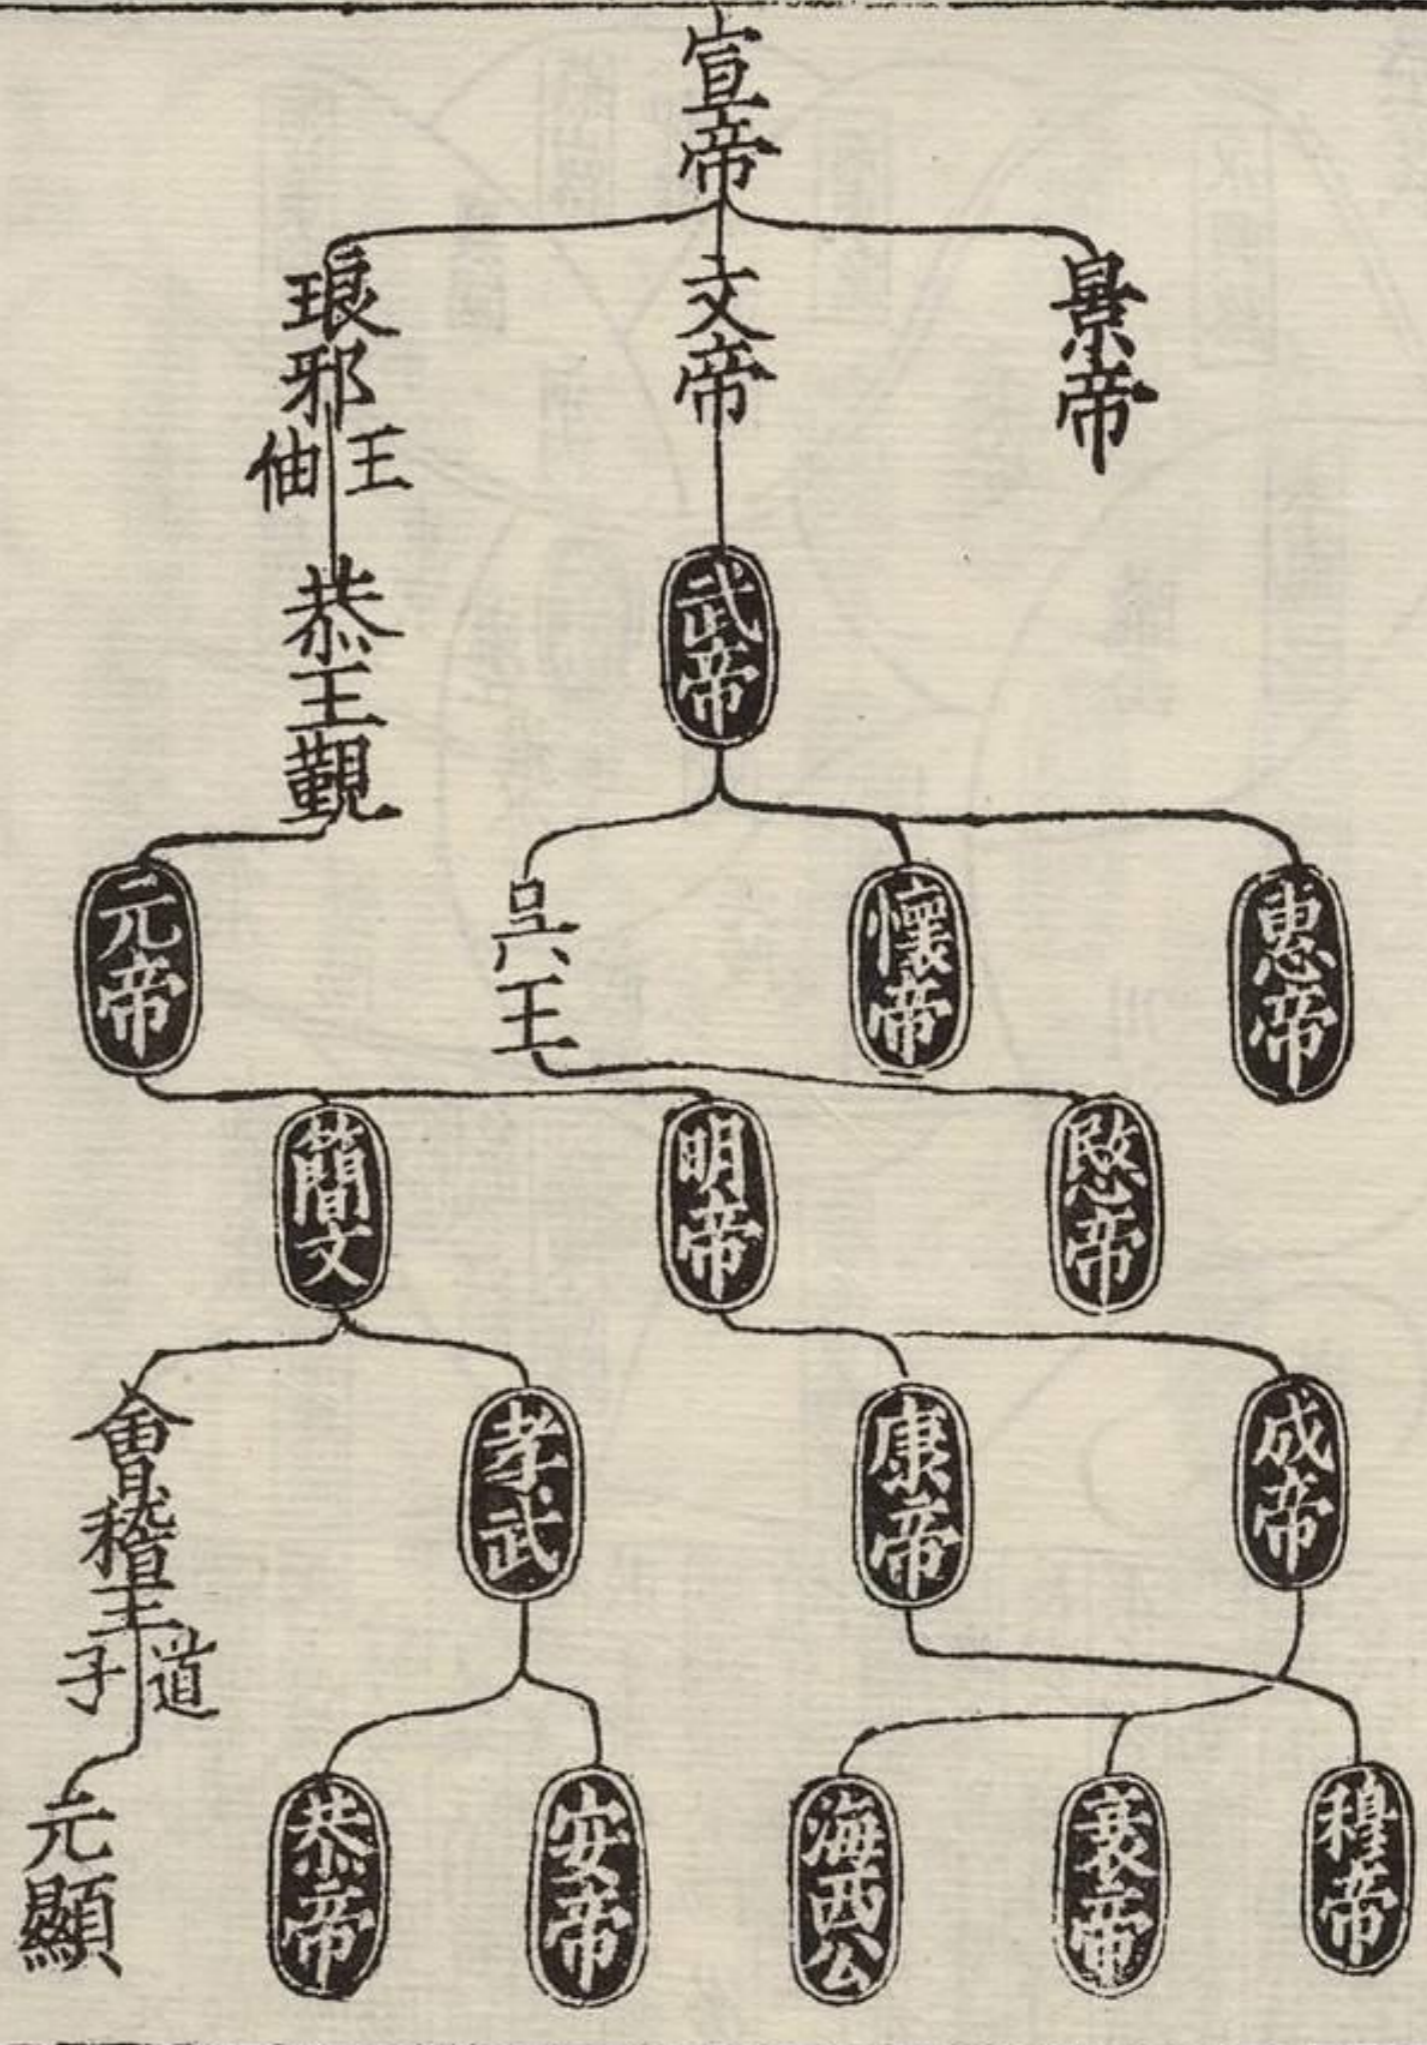 宣帝
景帝
文帝
琅邪王伷
武帝
恭王覲
惠帝
懷帝
吳王
元帝
愍帝
明帝
簡文
成帝
康帝
孝武
會稽王道子
穆帝
哀帝
海西公
安帝
恭帝
元顯